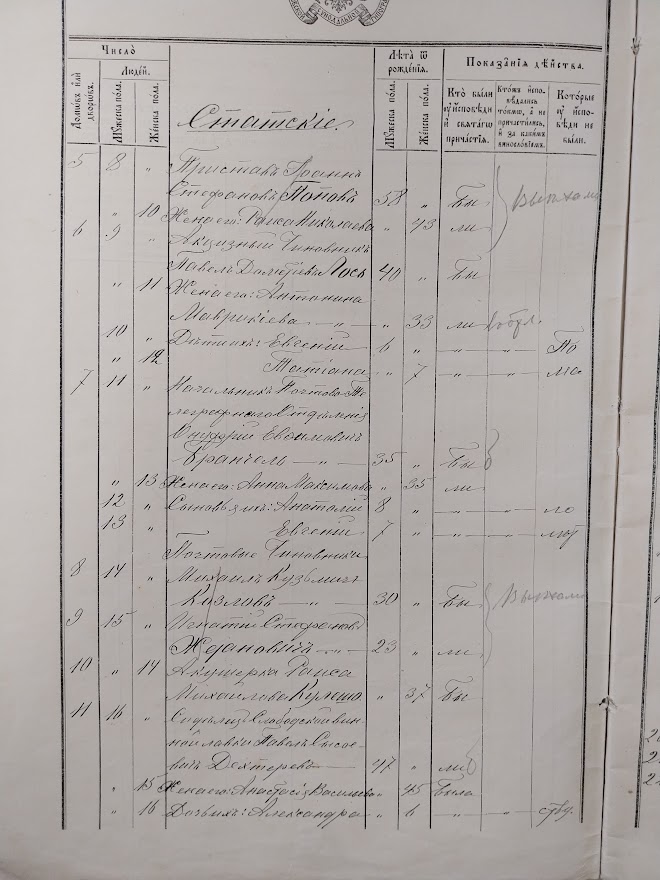 Число
Лѣта ѿ рожденїѧ.
Показанїѧ дѣйства.
Домѡвъ или дворѡвъ.
Людей.
Мꙋжеска пола.
Женска пола.
Мꙋжеска пола.
Женска пола.
Кто были ꙋ исповѣди и свѧтагѡ причастїѧ.
Ктѡмъ исповѣдались токмѡ, а не причастились, и за какимъ винословїемъ.
Которые ꙋ исповѣди не были.
Статскіе.
5 8 " Приставъ Іоаннъ
Стефановъ Поповъ 58 " Бы Выѣхали
" 10 Жена его: Раиса Николаева " 43 ли
6 9 " Акцизный Чиновникъ
Павелъ Лось 40 " Бы
" 11 Жена его: Антонина
Маврикіева — " — " 33 ли
10 " Дѣти ихъ: Евгеній 6 " — " — " — По
" 12 Татіана " 7 — " — " — ма
7 11 " Начальникъ Почтово-Те-
леграфнаго Отдѣленія
Онуфрій Евѳимовичъ
— " — 35 " Бы
" 13 Жена его: Анна Максимова " 35 ли
12 " Сыновья ихъ: Анатолій 8 " — " — " —
13 " Евгеній 7 " — " — " —
Почтовые Чиновники
8 14 " Михаилъ Кузьмичъ
Козловъ — " — 30 " Бы Выѣхали
9 15 " Игнатій Стефановъ
Ждановичъ — " — 23 " ли
10 " 14 Акушерка Раиса
Михайлова Кулеша " 37 Бы
11 16 " Сидѣлецъ Слободской вин-
ной лавки Павелъ Сысое-
вичъ Дехтеревъ 47 " ли
" 15 Жена его: Анастасія Васильева " 45 Была
" 16 Дочь ихъ: Александра " 6 — " — " —